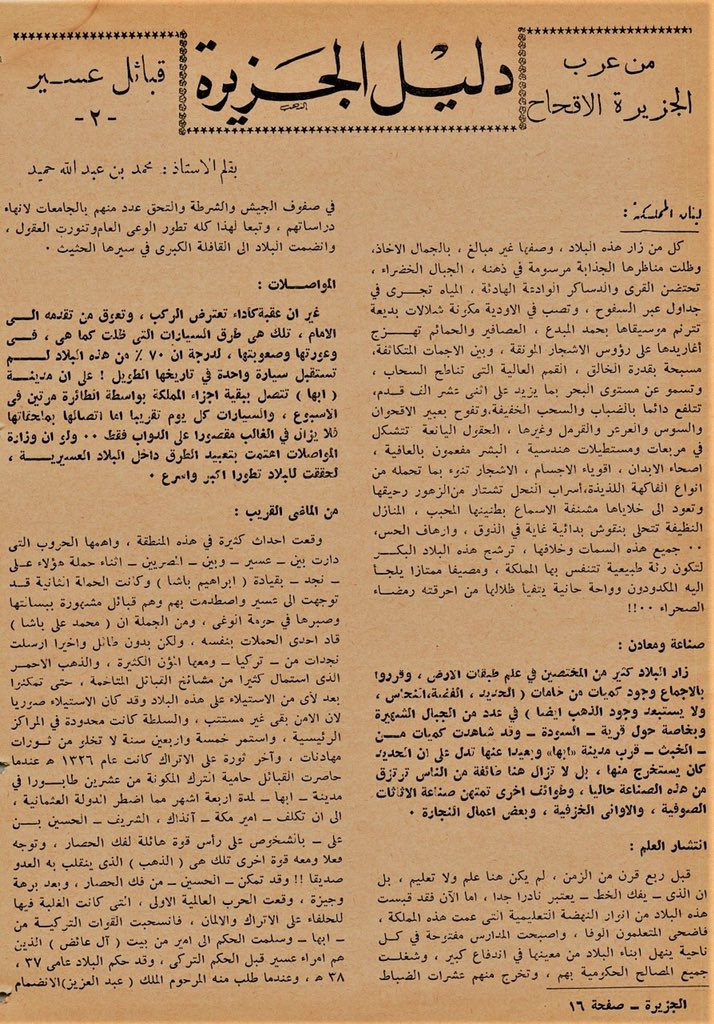 من عرب
الجزيرة الاقحاح
دليل الجزيرة
قبائل عسير
- ٢ -
بقلم الاستاذ : محمد بن عبد الله حميد
لبنان المملكة :
كل من زار هذه البلاد ، وصفها غير مبالغ ، بالجمال الاخاذ،
وظلت مناظرها الجذابة مرسومة في ذهنه ، الجبال الخضراء ،
تحتضن القرى والدساكر الوادعة الهادئة، المياه تجرى في
جداول عبر السفوح ، وتصب في الاودية مكونة شلالات بديعة
تترنم موسيقاها بحمد المبدع ، العصافير والحمائم تهزج
أغاريدها على رؤوس الاشجار المونقة ، وبين الاجمات المتكاثفة،
مسبحة بقدرة الخالق ، القمم العالية التى تناطح السحاب ،
وتسمو عن مستوى البحر بما يزيد على اثنى عشر الف قدم،
تتلفع دائما بالضباب والسحب الخفيفة،وتفوح بعبير الاقحوان
والسوس والعرعر والقرمل وغيرها ، الحقول اليانعة تتشكل
في مربعات ومستطيلات هندسية ، البشر مفعمون بالعافية ،
اصحاء الابدان ، اقوياء الاجسام ، الاشجار تنوء بما تحمله من
انواع الفاكهة اللذيذة،أسراب النحل تشتار من الزهور رحيقها
وتعود الى خلاياها مشنفة الاسماع بطنينها المحبب ، المنازل
النظيفة تتحلى بنقوش بدائية غاية في الذوق ، وارهاف الحس،
٠٠ جميع هذه السمات وخلافها ، ترشح هذه البلاد البكر
لتكون رئة طبيعية تتنفس بها المملكة ، ومصيفا ممتازا يلجأ
اليه المكدودون وواحة حانية يتفيأ ظلالها من احرقته رمضاء
الصحراء ٠٠!!
صناعة ومعادن :
زار البلاد كثير من المختصين في علم طبقات الارض ، وقرروا
بالاجماع وجود كميات من خامات ( الحديد ، الفضة،النحاس ،
ولا يستبعد وجود الذهب ايضا ) في عدد من الجبال الشهيرة
وبخاصة حول قرية ـ السودة ـ وقد شاهدت كميات من
ـ الخبث ـ قرب مدينة «ابها» وبعيدا عنها تدل على ان الحديد
كان يستخرج منها ، بل لا تزال هنا طائفة من الناس ترتزق
من هذه الصناعة حاليا ، وطوائف اخرى تمتهن صناعة الاثاثات
الصوفية ، والاوانى الخزفية ، وبعض اعمال النجارة ٠
انتشار العلم :
قبل ربع قرن من الزمن ، لم يكن هنا علم ولا تعليم ، بل
ان الذى ـ يفك الخط ـ يعتبر نادرا جدا ، اما الآن فقد قبست
هذه البلاد من انوار النهضة التعليمية التى عمت هذه المملكة ،
فاضحى المتعلمون الوفا ، واصبحت المدارس مفتوحة في كل
ناحية ينهل ابناء البلاد من معينها في اندفاع كبير ، وشغلت
جميع المصالح الحكومية بهم ، وتخرج منهم عشرات الضباط
في صفوف الجيش والشرطة والتحق عدد منهم بالجامعات لانهاء
دراساتهم ، وتبعا لهذا كله تطور الوعى العام وتنورت العقول ،
وانضمت البلاد الى القافلة الكبرى في سيرها الحثيث ٠
المواصلات :
غير ان عقبة كأداء تعترض الركب ، وتعوق من تقدمه الى
الامام ، تلك هى طرق السيارات التى ظلت كما هى ، فى
وعورتها وصعوبتها ، لدرجة ان ٧٠ ٪ من هذه البلاد لم
تستقبل سيارة واحدة في تاريخها الطويل ! على ان مدينة
( ابها ) تتصل ببقية اجزاء المملكة بواسطة الطائرة مرتين فى
الاسبوع ، والسيارات كل يوم تقريبا اما اتصالها بملحقاتها
فلا يزال في الغالب مقصورا على الدواب فقط ٠٠ ولو ان وزارة
المواصلات اهتمت بتعبيد الطرق داخل البلاد العسيرية ،
لحققت للبلاد تطورا اكبر واسرع ٠
من الماضى القريب :
وقعت احداث كثيرة في هذه المنطقة ، واهمها الحروب التى
دارت بين ـ عسير ـ وبين ـ المصريين ـ اثناء حملة هؤلاء على
ـ نجد ـ بقيادة ( ابراهيم باشا ) وكانت الحملة الثانية قد
توجهت الى عسير واصطدمت بهم وهم قبائل مشهورة ببسالتها
وصبرها في حومة الوغى ، ومن الجملة ان ( محمد على باشا )
قاد احدى الحملات بنفسه ، ولكن بدون طائل واخيرا ارسلت
نجدات من ـ تركيا ـ ومعها المؤن الكثيرة ، والذهب الاحمر
الذى استمال كثيرا من مشائخ القبائل المتاخمة ، حتى تمكنوا
بعد لأى من الاستيلاء على هذه البلاد وقد كان الاستيلاء صوريا
لان الامن بقى غير مستتب ، والسلطة كانت محدودة في المراكز
الرئيسية ، واستمر خمسة واربعين سنة لا تخلو من ثورات
مهادنات ، وآخر ثورة على الاتراك كانت عام ١٣٢٦ ه عندما
حاصرت القبائل حامية الترك المكونة من عشرين طابورا في
مدينة ـ ابها ـ لمدة اربعة اشهر مما اضطر الدولة العثمانية ،
الى ان تكلف ـ امير مكة ـ آنذاك ، الشريف ـ الحسين بن
على ـ بالشخوص على رأس قوة هائلة لفك الحصار ، وتوجه
فعلا ومعه قوة اخرى تلك هى ( الذهب ) الذى ينقلب به العدو
صديقا !! وقد تمكن ـ الحسين ـ من فك الحصار ، وبعد برهة
وجيزة ، وقعت الحرب العالمية الاولى ، التى كانت الغلبة فيها
للحلفاء على الاتراك والالمان ، فانسحبت القوات التركية من
ـ ابها ـ وسلمت الحكم الى امير من بيت ( آل عائض ) الذين
هم امراء عسير قبل الحكم التركى ، وقد حكم البلاد عامى ٣٧ ،
٣٨ ه ، وعندما طلب منه المرحوم الملك ( عبد العزيز)الانضمام
الجزيرة ـ صفحة ١٦